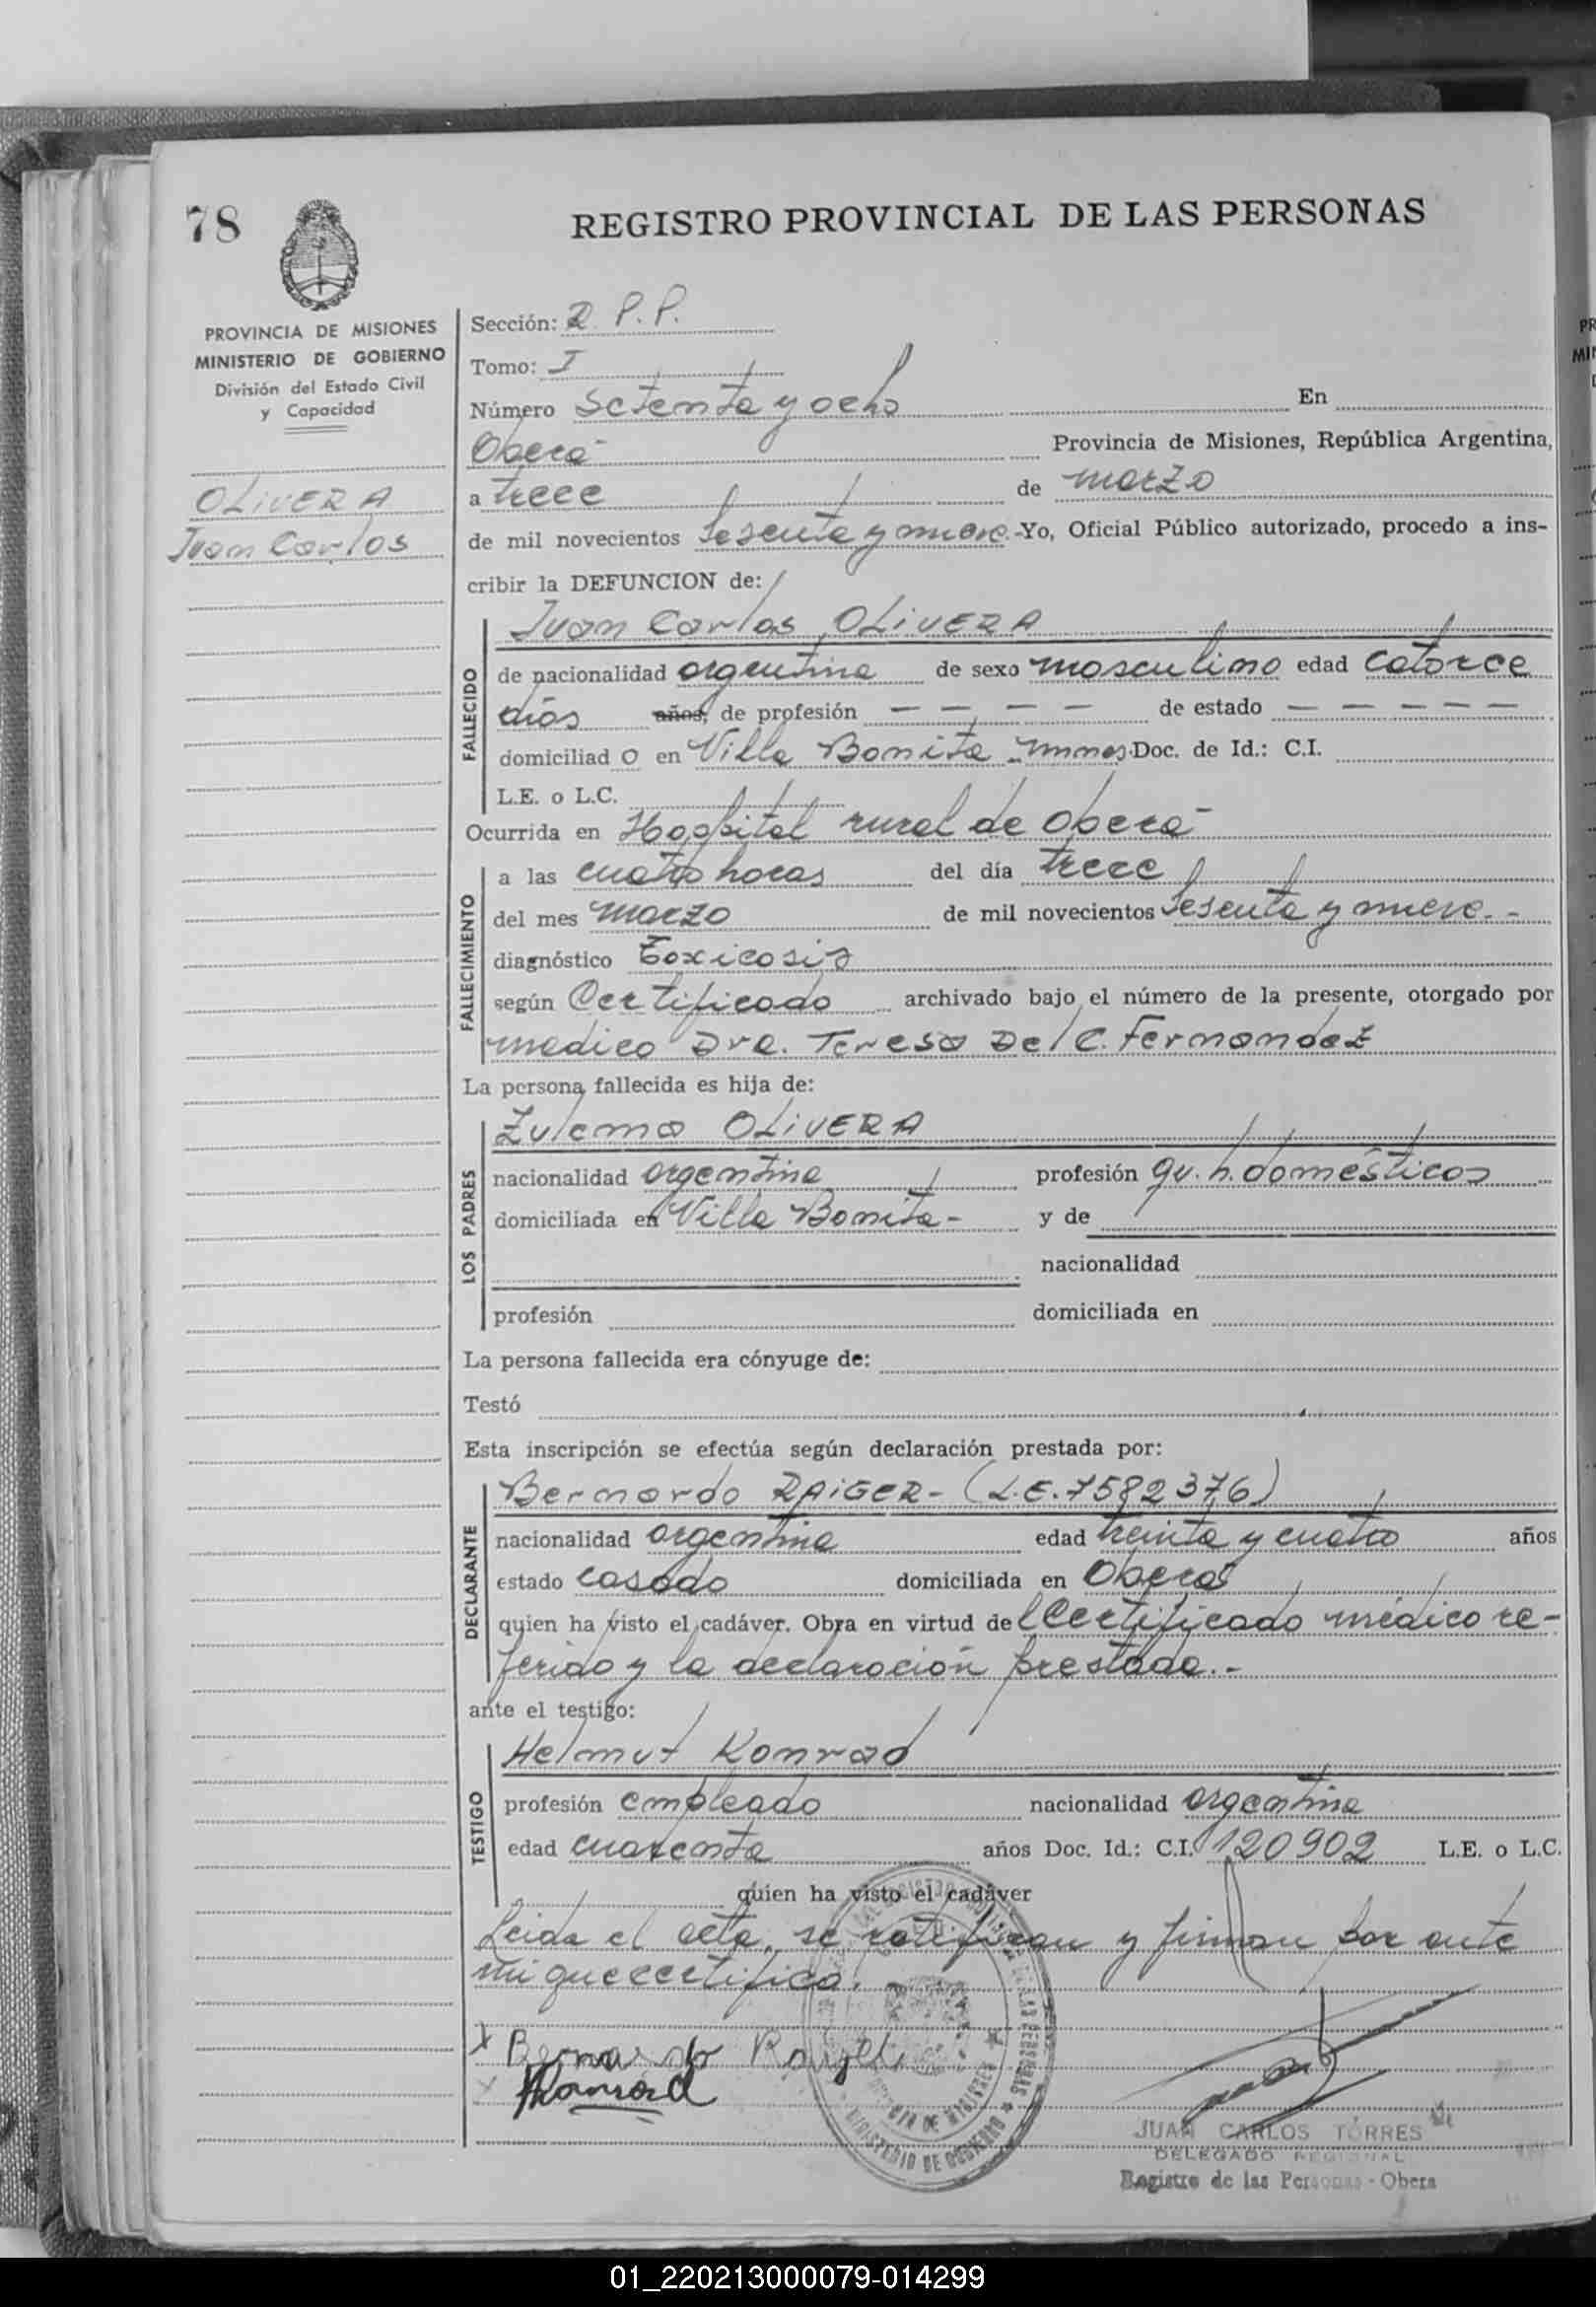 78
REGISTRO PROVINCIAL DE LAS PERSONAS
PROVINCIA DE MISIONES
MINISTERIO DE GOBIERNO
División del Estado Civil
y Capacidad
OLIVERA
Juan Carlos
Sección: R.P.P.
Tomo: I
Número Setenta y ocho En
Oberá Provincia de Misiones, República Argentina,
a trece de marzo
de mil novecientos Sesenta y nueve.-Yo, Oficial Público autorizado, procedo a ins-
cribir la DEFUNCION de:
Juan Carlos OLIVERA
FALLECIDO
de nacionalidad argentina de sexo masculino edad catorce
días años, de profesión - - - - de estado - - - - -
domiciliad o en Villa Bonita - Mnes. Doc. de Id.: C.I.
L.E. o L.C.
Ocurrida en Hospital rural de Oberá
FALLECIMIENTO
a las cuatro horas del día trece
del mes marzo de mil novecientos Sesenta y nueve.-
diagnóstico Toxicosis
según Certificado archivado bajo el número de la presente, otorgado por
medico Dra. Teresa Del C. Fernandez
La persona fallecida es hija de:
LOS PADRES
Zulema OLIVERA
nacionalidad argentina profesión qu. h. domésticos
domiciliada en Villa Bonita- y de
nacionalidad
profesión domiciliada en
La persona fallecida era cónyuge de:
Testó
Esta inscripción se efectúa según declaración prestada por:
DECLARANTE
Bernardo RAIGER- (L.E. 7582376)
nacionalidad argentina edad treinta y cuatro años
estado casado domiciliada en Oberá
quien ha visto el cadáver. Obra en virtud del Certificado médico re-
ferido y la declaración prestada.-
ante el testigo:
TESTIGO
Helmut Konrad
profesión empleado nacionalidad argentina
edad cuarenta años Doc. Id.: C.I. 120902 L.E. o L.C.
quien ha visto el cadáver
Leida el acta, se ratifican y firman por ante
mi que certifico.
x Bernardo Raiger
x Konrad
MINISTERIO DE GOBIERNO
JUAN CARLOS TORRES
DELEGADO REGIONAL
Registro de las Personas - Obera
01_220213000079-014299